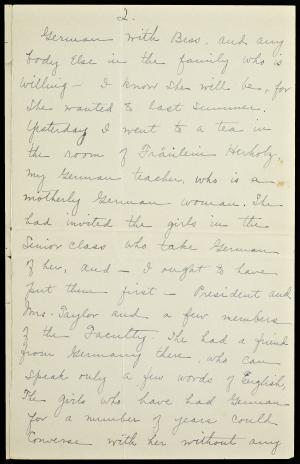 2.
German with Bess, and any
body else in the family who is
willing – I know she will be, for
she wanted to last summer.
Yesterday I went to a tea in
the room of Fräulein Herholz,
my German teacher, who is a
motherly German woman. She
had invited the girls in the
Senior class who take German
of her, and – I ought to have
put them first – President and
Mrs. Taylor and a few members
of the Faculty. She had a friend
from Germany there, who can
speak only a few words of English,
The girls who have had German
for a number of years could
converse with her without any